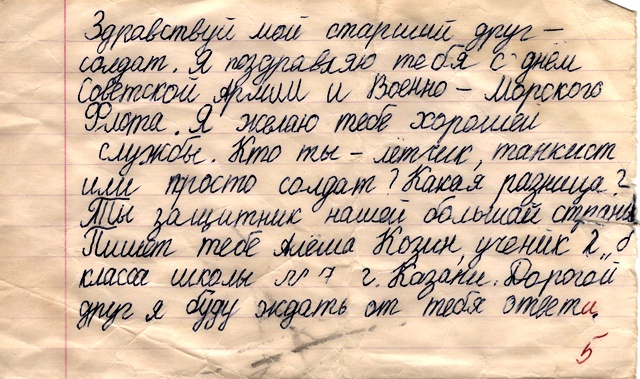 Здравствуй мой старший друг –
солдат. Я поздравляю тебя с днём
Советской Армии и Военно – Морского
Флота. Я желаю тебе хорошей
службы. Кто ты – лётчик, танкист
или просто солдат? Какая разница?
Ты защитник нашей большой страны
Пишет тебе Алёша Козин, ученик 2 „б
класса школы № 7 г. Казани. Дорогой
друг я буду ждать от тебя ответа.
5